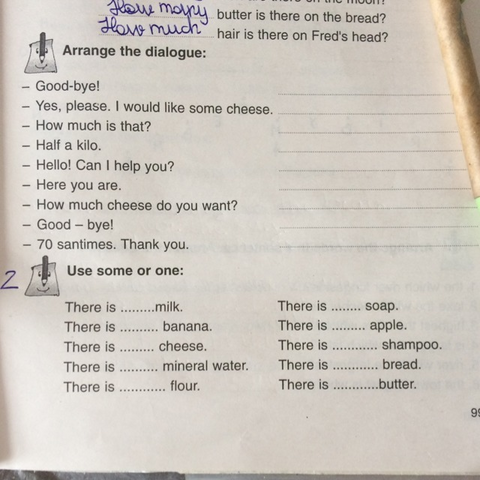 How many butter is there on the bread?
How much hair is there on Fred's head?
Arrange the dialogue:
– Good-bye!
– Yes, please. I would like some cheese.
– How much is that?
– Half a kilo.
– Hello! Can I help you?
– Here you are.
– How much cheese do you want?
– Good – bye!
– 70 santimes. Thank you.
2 Use some or one:
There is .........milk.
There is .......... banana.
There is ......... cheese.
There is .......... mineral water.
There is ........... flour.
There is ........ soap.
There is ......... apple.
There is ............ shampoo.
There is ............ bread.
There is ............butter.